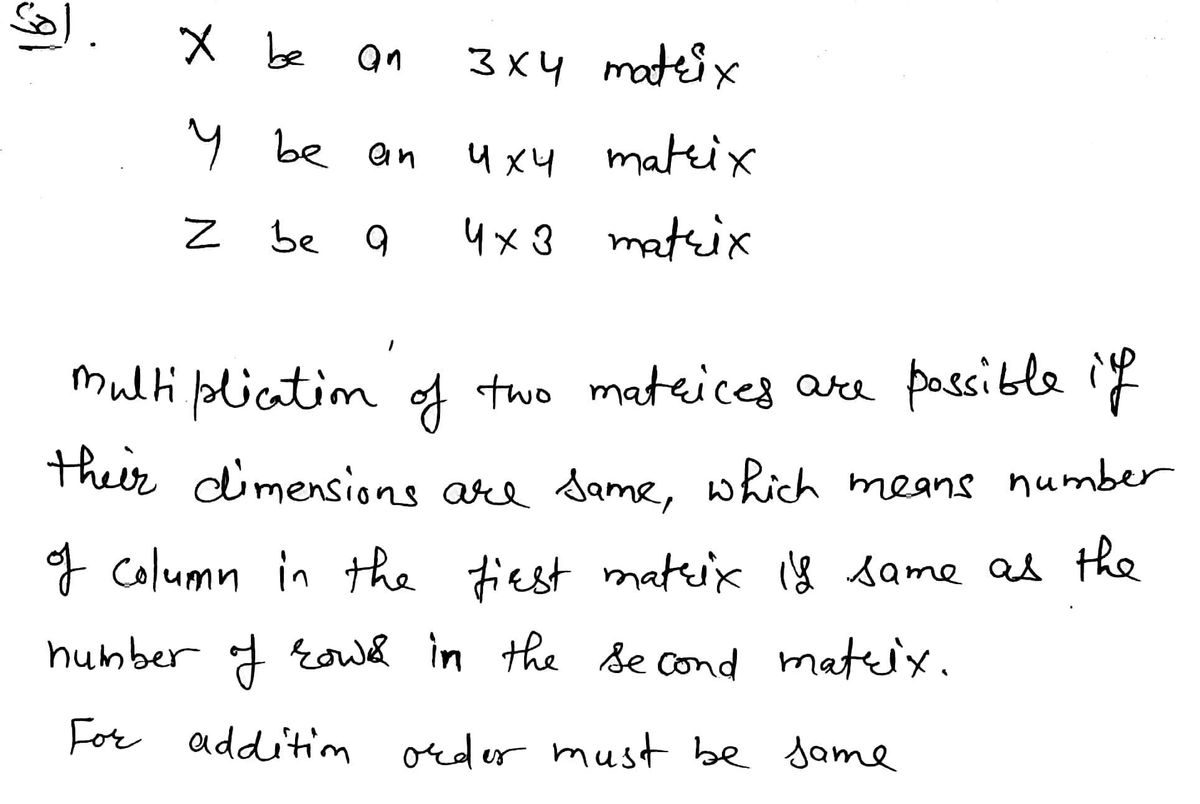 Sol.
X be an 3x4 matrix
Y be an 4x4 matrix
Z be a 4x3 matrix
Multiplication of two matrices are possible if
their dimensions are same, which means number
of column in the first matrix is same as the
number of rows in the second matrix.
For addition order must be same